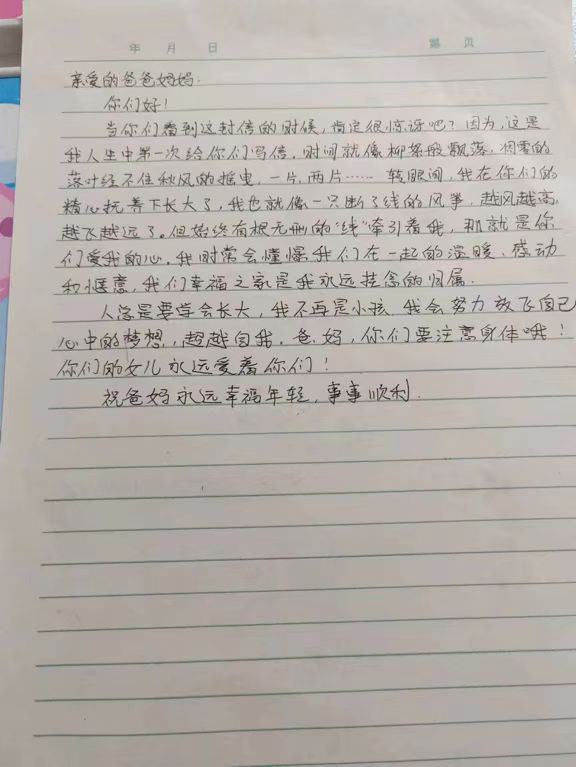 年 月 日 第 页
亲爱的爸爸妈妈:
你们好!
当你们看到这封信的时候,肯定很惊讶吧?因为,这是
我人生中第一次给你们写信,时间就像柳絮般飘落,凋零的
落叶经不住秋风的摇曳,一片,两片……转眼间,我在你们的
精心抚养下长大了,我也就像一只断了线的风筝,越风越高,
越飞越远了。但始终有根无形的“线”牵引着我,那就是你
们爱我的心,我时常会憧憬我们在一起的温暖、感动
和惬意,我们幸福之家是我永远挂念的归属.
人总是要学会长大,我不再是小孩,我会努力放飞自己
心中的梦想,超越自我。爸,妈,你们要注意身体哦!
你们的女儿永远爱着你们!
祝爸妈永远幸福年轻,事事顺利.